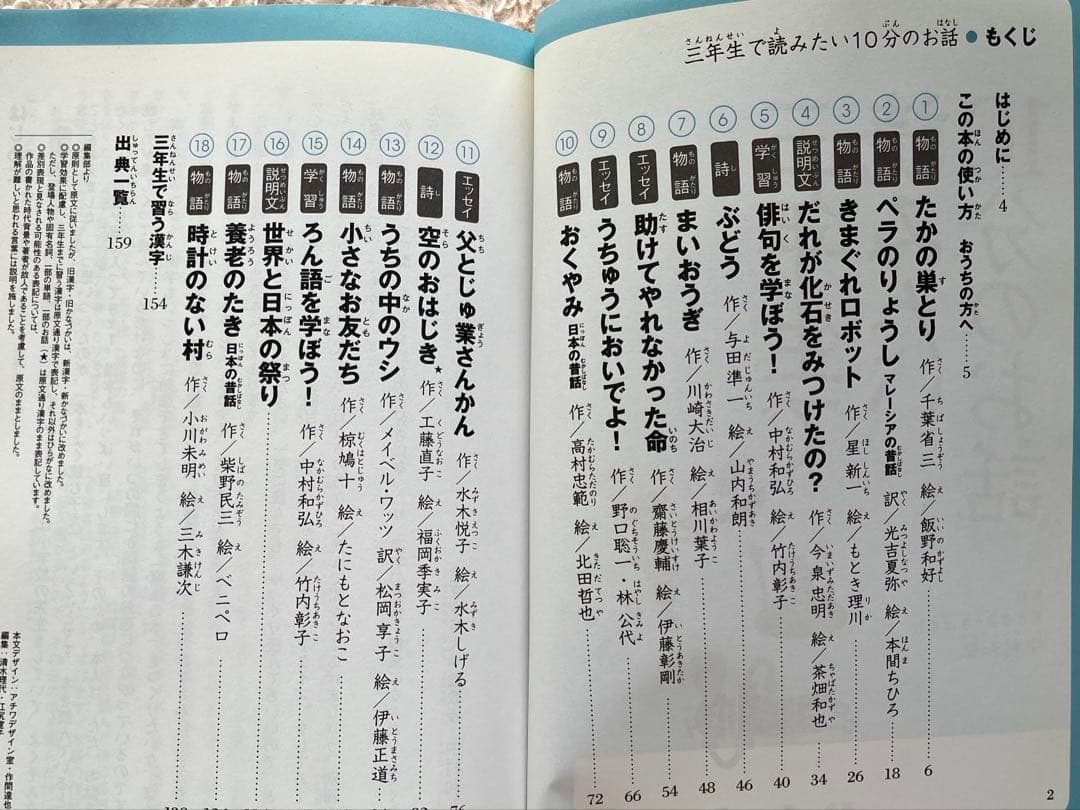 三年生で読みたい10分のお話 ● もくじ
はじめに……4
この本の使い方 おうちの方へ……5
① 物語 たかの巣とり 作/千葉省三 絵/飯野和好……6
② 物語 ペラのりょうし マレーシアの昔話 訳/光吉夏弥 絵/本間ちひろ……18
③ 物語 きまぐれロボット 作/星新一 絵/もとき理川……26
④ 説明文 だれが化石をみつけたの? 作/今泉忠明 絵/茶畑和也……34
⑤ 学習 俳句を学ぼう! 作/中村和弘 絵/竹内彰子……40
⑥ 詩 ぶどう 作/与田凖一 絵/山内和朗……46
⑦ 物語 まいおうぎ 作/川崎大治 絵/相川葉子……48
⑧ エッセイ 助けてやれなかった命 作/齋藤慶輔 絵/伊藤彰剛……54
⑨ エッセイ うちゅうにおいでよ! 作/野口聡一・林公代……66
⑩ 物語 おくやみ 日本の昔話 作/高村忠範 絵/北田哲也……72
2
⑪ エッセイ 父とじゅ業さんかん 作/水木悦子 絵/水木しげる……76
⑫ 詩 空のおはじき★ 作/工藤直子 絵/福岡季実子……
⑬ 物語 うちの中のウシ 作/メイベル・ワッツ 訳/松岡享子 絵/伊藤正道……
⑭ 物語 小さなお友だち 作/椋鳩十 絵/たにもとなおこ……
⑮ 学習 ろん語を学ぼう! 作/中村和弘 絵/竹内彰子……
⑯ 説明文 世界と日本の祭り……
⑰ 物語 養老のたき 日本の昔話 作/柴野民三 絵/ベニペロ……
⑱ 物語 時計のない村 作/小川未明 絵/三木謙次……
三年生で習う漢字……154
出典一覧……159
編集部より
◎原則として原文に従いましたが、旧漢字・旧かなづかいは、新漢字・新かなづかいに改めました。
◎学習効果に配慮し、三年生までに習う漢字は原文通り漢字で表記し、それ以外はひらがなに改めました。
ただし、登場人物や固有名詞、一部の単語、一部のお話(★)は原文通り漢字のまま表記しています。
◎差別表現と見なされる可能性のある表記については、
作品の書かれた時代背景や著者が故人であることを考慮して、原文のままとしました。
◎理解が難しいと思われる言葉には説明を施しました。
本文デザイン:アチワデザイン室・作間達也
編集:清水理代・江尻